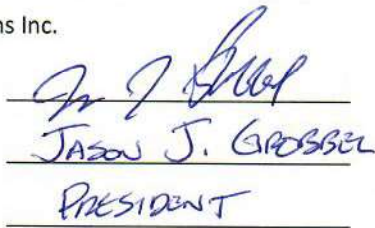 ns Inc.
JASON J. GROBBEL
PRESIDENT